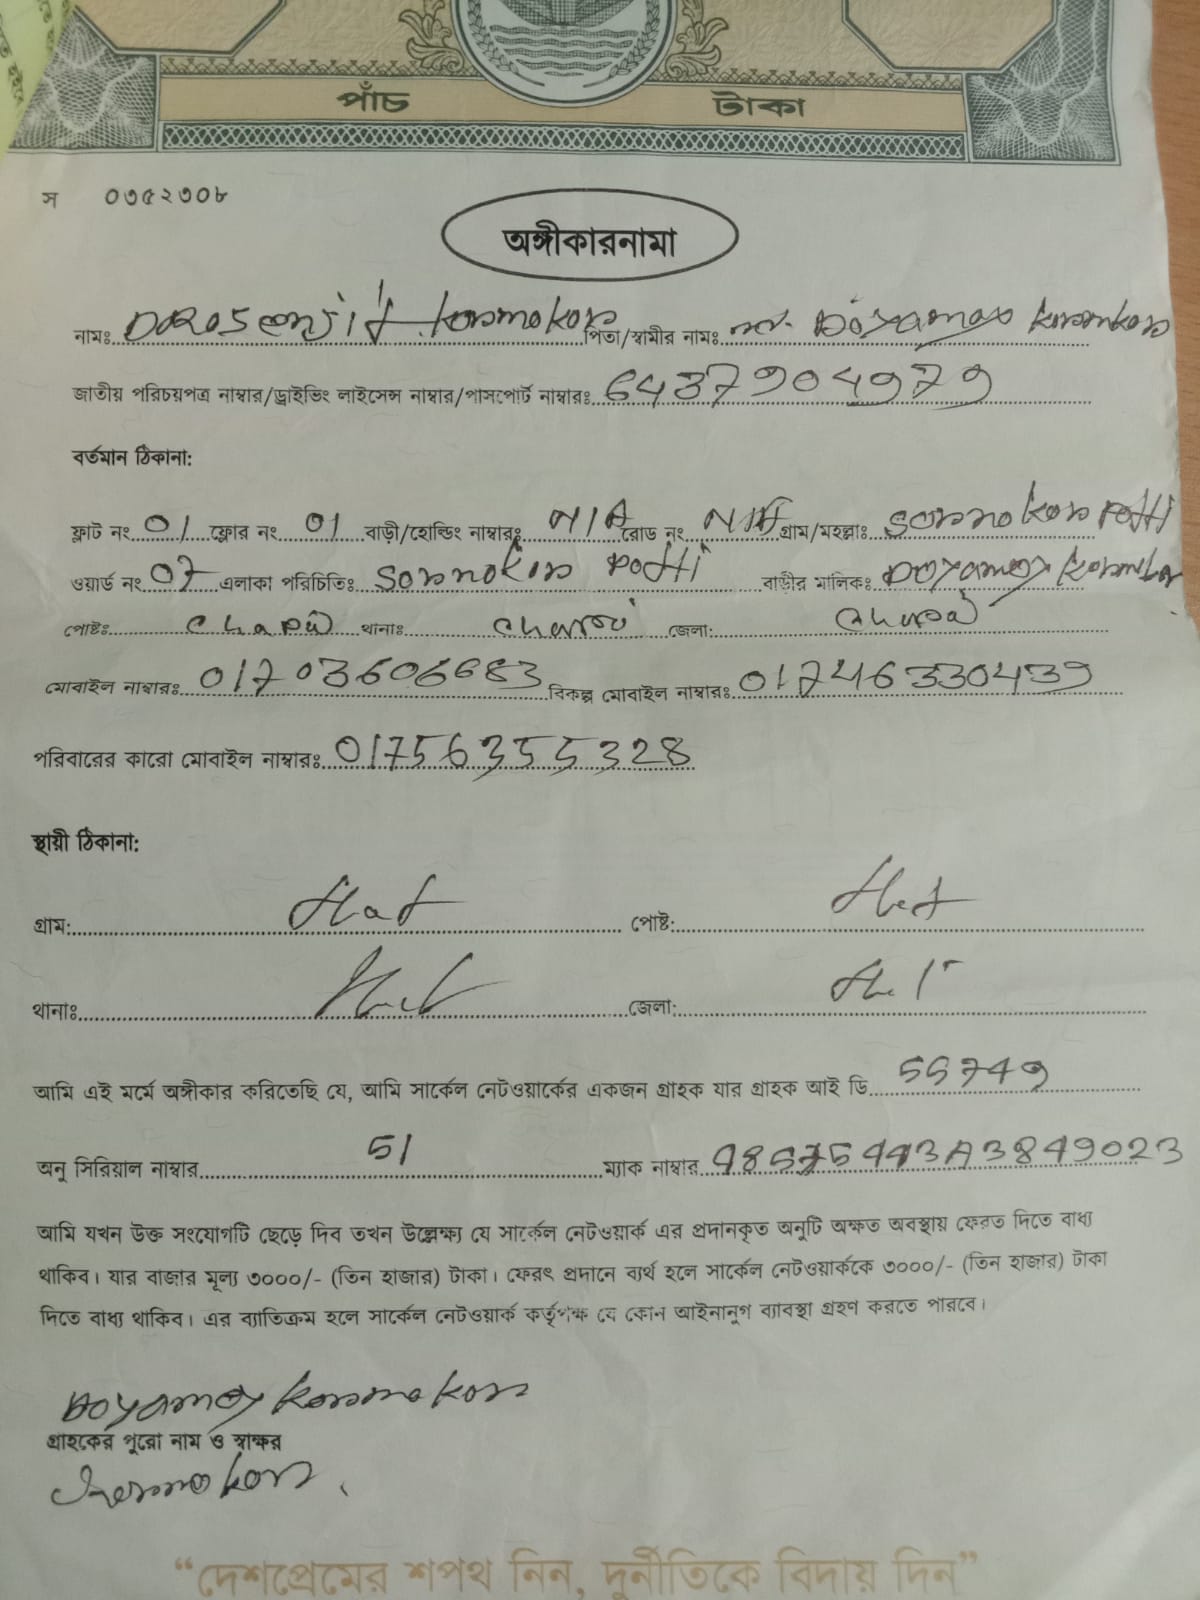 পাঁচ টাকা
স ০৩৫২৩০৮
অঙ্গীকারনামা
নামঃ kormokor পিতা/স্বামীর নামঃ Doyamoy kormokor
জাতীয় পরিচয়পত্র নাম্বার/ড্রাইভিং লাইসেন্স নাম্বার/পাসপোর্ট নাম্বারঃ 6437904979
বর্তমান ঠিকানা:
ফ্লাট নং 01 ফ্লোর নং 01 বাড়ী/হোল্ডিং নাম্বারঃ N/A রোড নং N/A গ্রাম/মহল্লাঃ Sornokar Potti
ওয়ার্ড নং 07 এলাকা পরিচিতিঃ Sornokar Potti বাড়ীর মালিকঃ Doyamoy kormokar
পোষ্টঃ থানাঃ জেলা:
মোবাইল নাম্বারঃ 01703606683 বিকল্প মোবাইল নাম্বারঃ 01746330439
পরিবারের কারো মোবাইল নাম্বারঃ 01756355328
স্থায়ী ঠিকানা:
গ্রাম: পোষ্ট:
থানাঃ জেলা:
আমি এই মর্মে অঙ্গীকার করিতেছি যে, আমি সার্কেল নেটওয়ার্কের একজন গ্রাহক যার গ্রাহক আই ডি 55749
অনু সিরিয়াল নাম্বার 51 ম্যাক নাম্বার
আমি যখন উক্ত সংযোগটি ছেড়ে দিব তখন উল্লেক্ষ্য যে সার্কেল নেটওয়ার্ক এর প্রদানকৃত অনুটি অক্ষত অবস্থায় ফেরত দিতে বাধ্য
থাকিব। যার বাজার মূল্য ৩০০০/- (তিন হাজার) টাকা। ফেরৎ প্রদানে ব্যর্থ হলে সার্কেল নেটওয়ার্ককে ৩০০০/- (তিন হাজার) টাকা
দিতে বাধ্য থাকিব। এর ব্যাতিক্রম হলে সার্কেল নেটওয়ার্ক কর্তৃপক্ষ যে কোন আইনানুগ ব্যাবস্থা গ্রহণ করতে পারবে।
Doyamoy kormokor
গ্রাহকের পুরো নাম ও স্বাক্ষর
“দেশপ্রেমের শপথ নিন, দুর্নীতিকে বিদায় দিন”